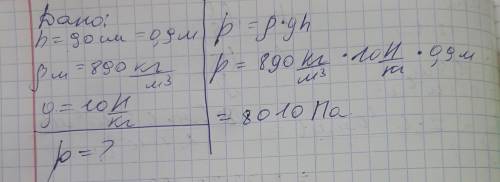 Дано:
h = 90 см = 0,9 м
ρм = 890 кг/м3
g = 10 Н/кг
p = ?
p = ρ · gh
p = 890 кг/м3 · 10 Н/кг · 0,9 м
= 8010 Па